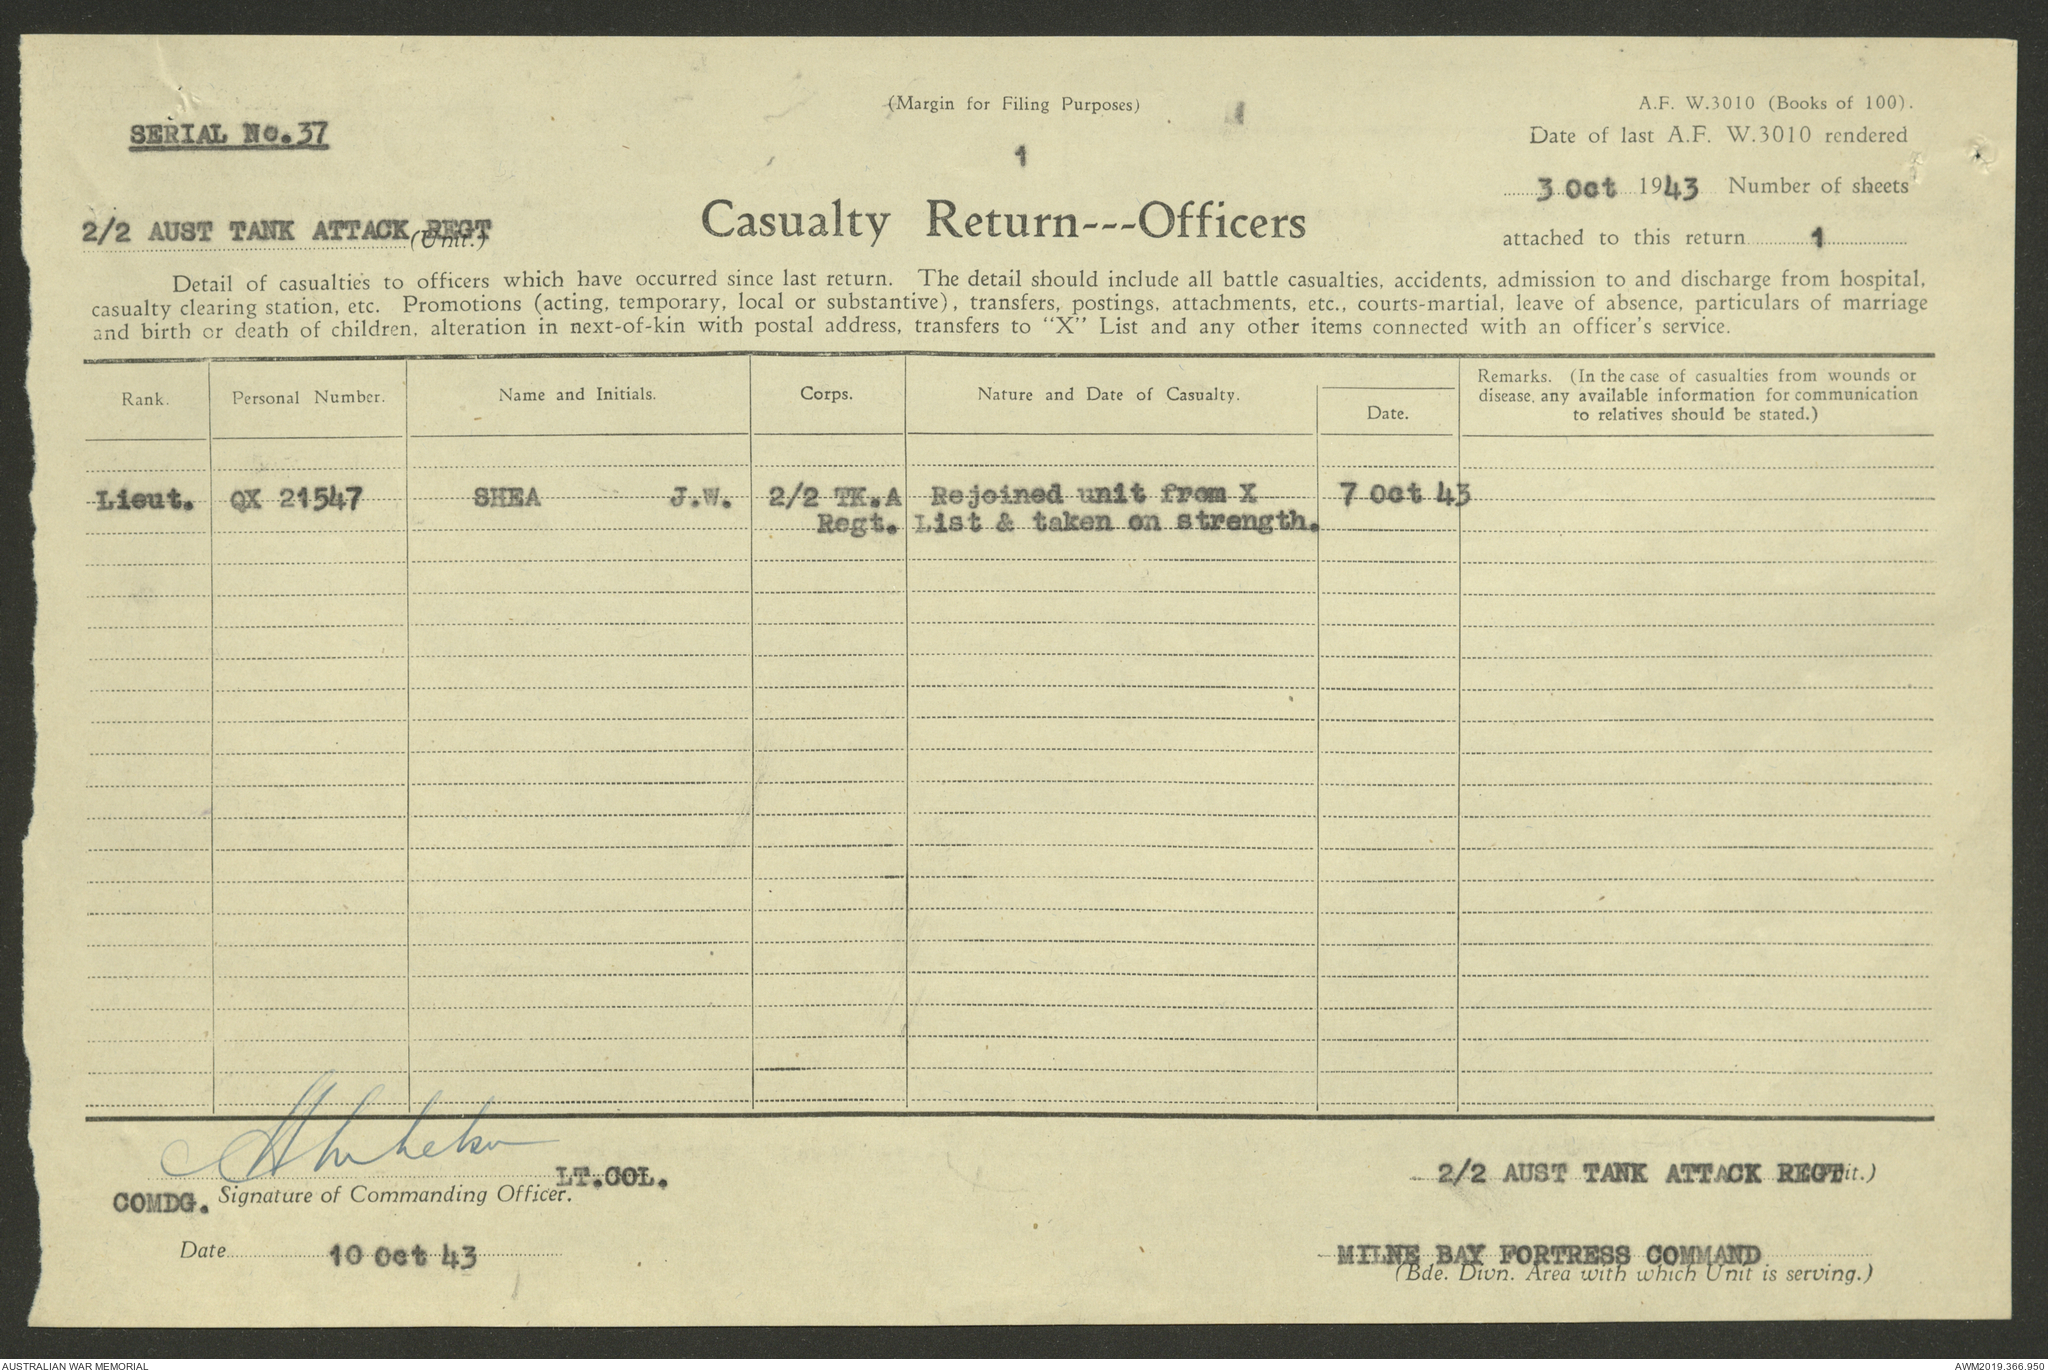 (Margin for Filing Purposes)
A.F. W.3010 (Books of 100).
SERIAL No.37
Date of last A.F. W.3010 rendered
1
3 Oct 1943 Number of sheets
2/2 AUST TANK ATTACK REGT (Unit.)
Casualty Return---Officers
attached to this return 1
Detail of casualties to officers which have occurred since last return. The detail should include all battle casualties, accidents, admission to and discharge from hospital,
casualty clearing station, etc. Promotions (acting, temporary, local or substantive), transfers, postings, attachments, etc., courts-martial, leave of absence, particulars of marriage
and birth or death of children, alteration in next-of-kin with postal address, transfers to "X" List and any other items connected with an officer's service.
Rank. Personal Number. Name and Initials. Corps. Nature and Date of Casualty. Date.
Remarks. (In the case of casualties from wounds or
disease, any available information for communication
to relatives should be stated.)
Lieut. QX 21547 SHEA J.W. 2/2 TK.A Rejoined unit from X 7 Oct 43
Regt. List & taken on strength.
LT.COL.
COMDG. Signature of Commanding Officer.
2/2 AUST TANK ATTACK REGT (Unit.)
Date 10 Oct 43
MILNE BAY FORTRESS COMMAND
(Bde. Divn. Area with which Unit is serving.)
AUSTRALIAN WAR MEMORIAL
AWM2019.366.950